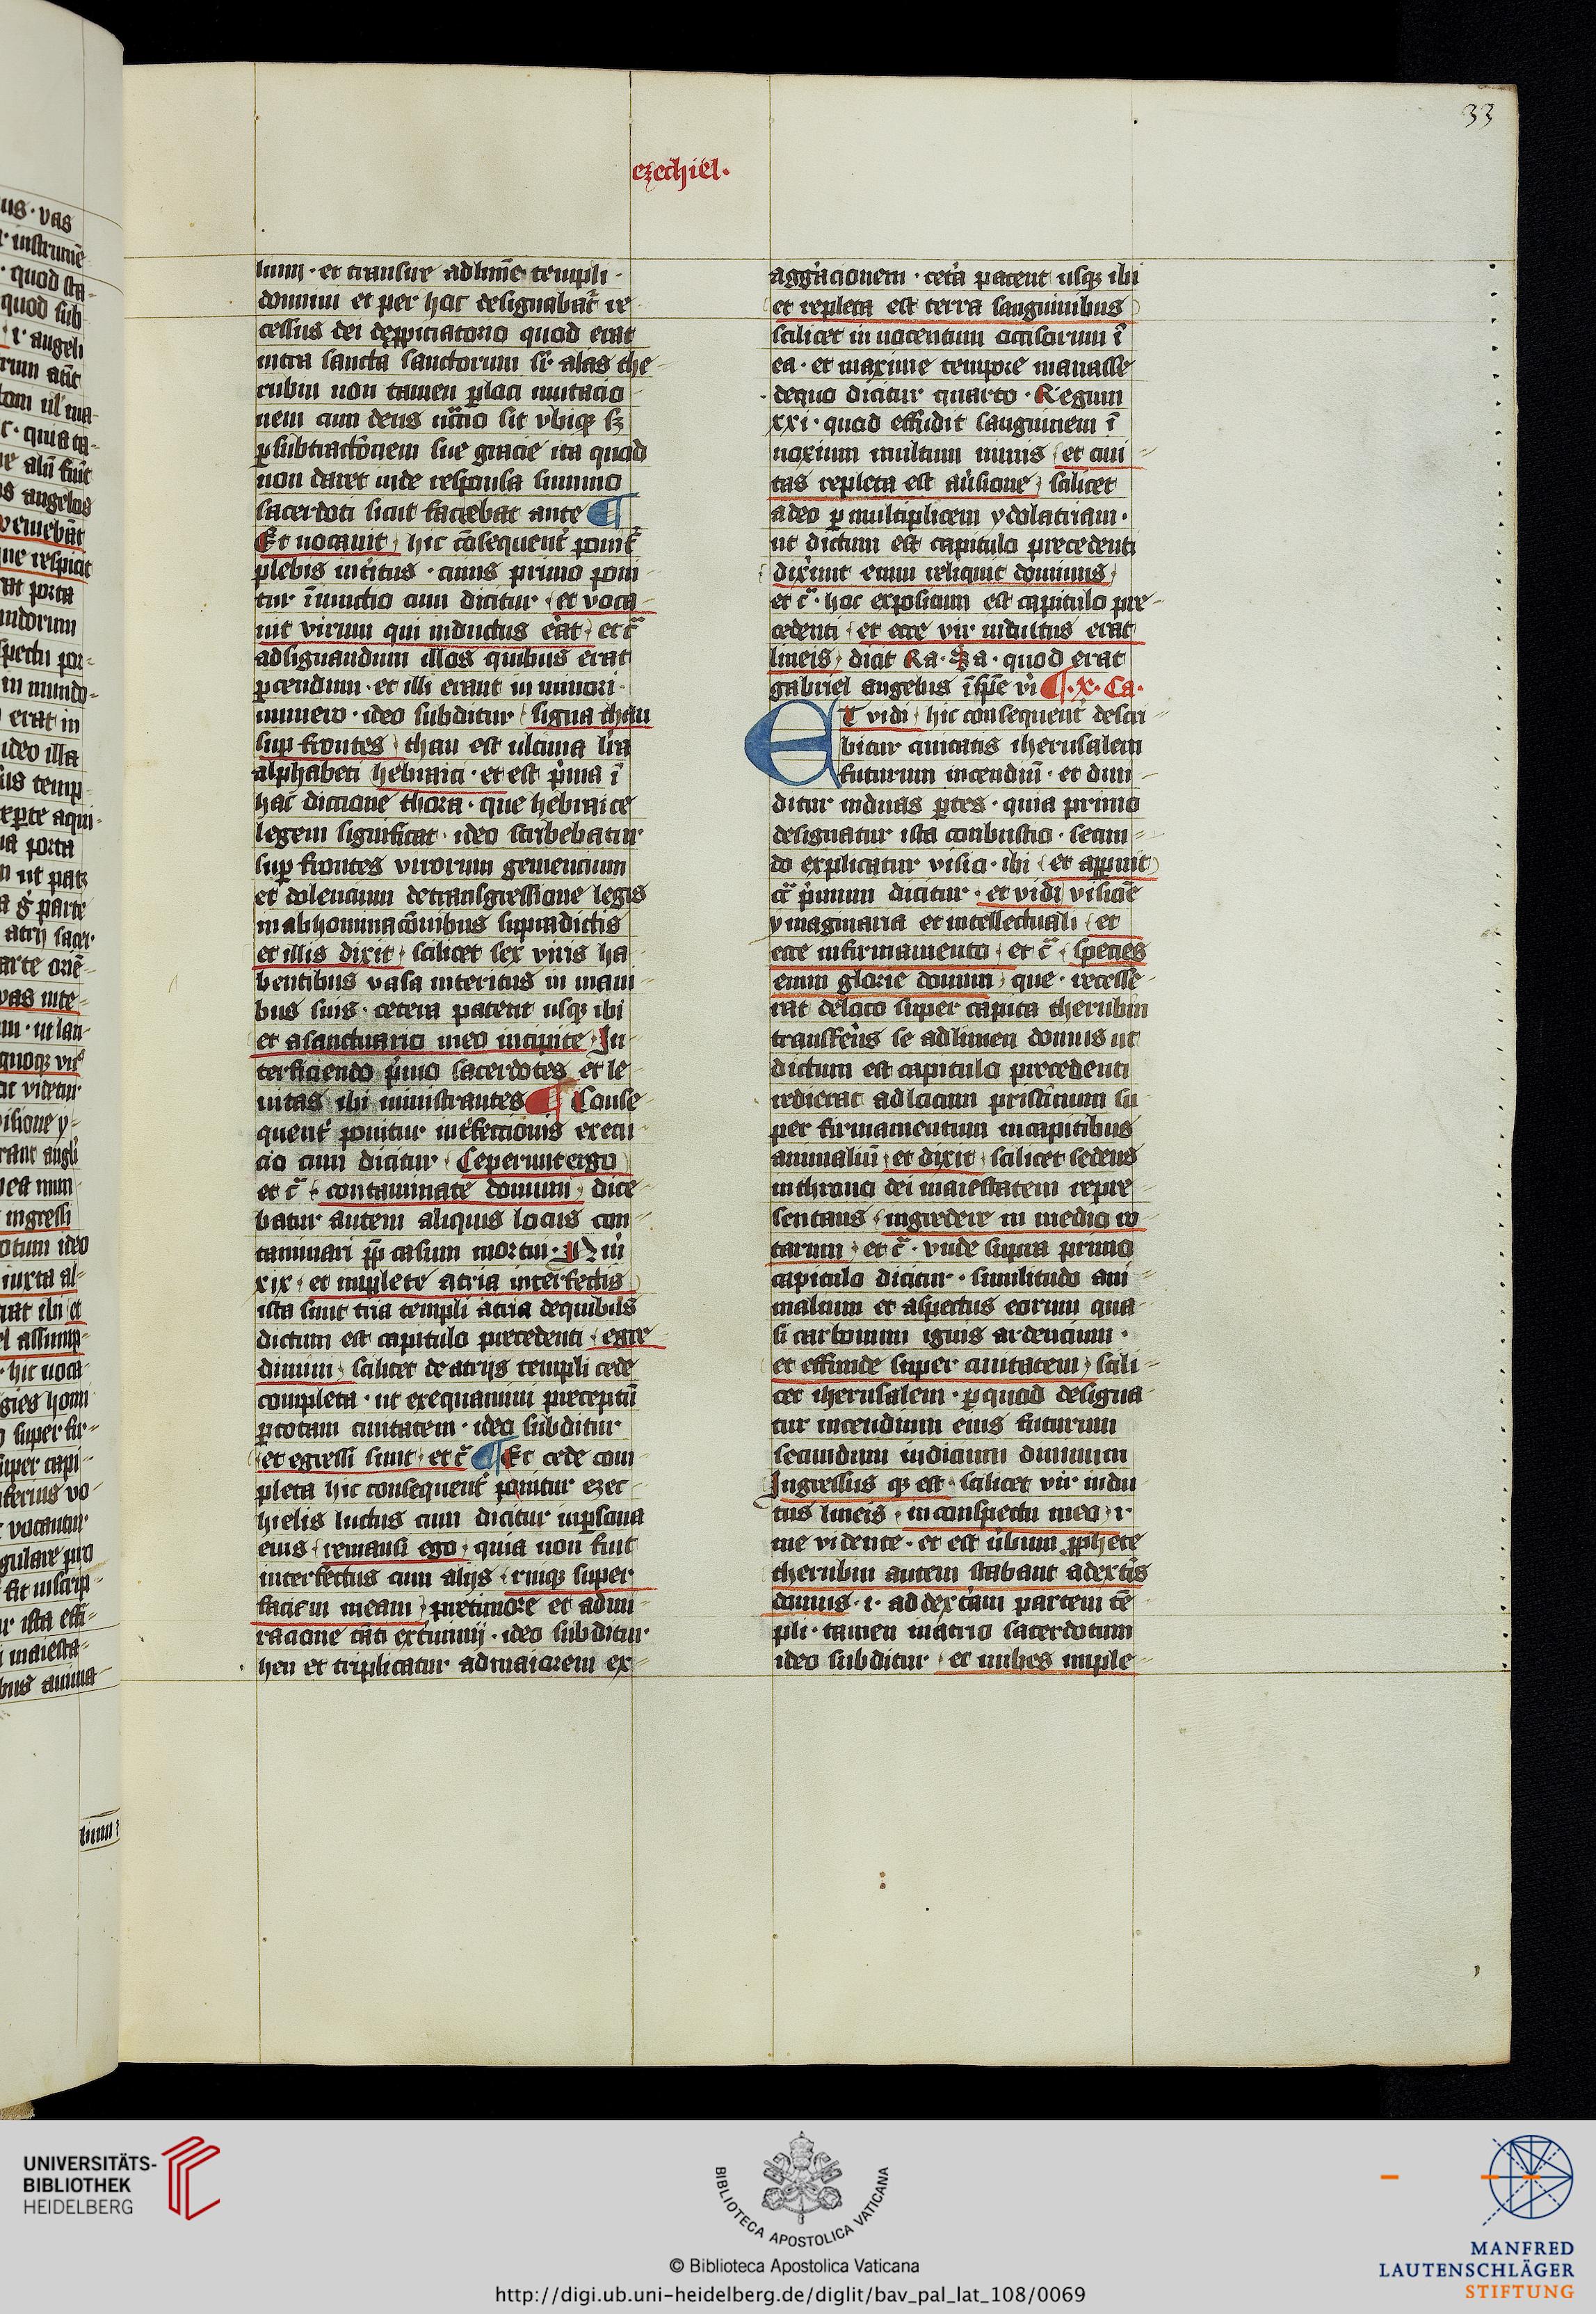 33
ezechiel.
lumi · et transire ad lime᷑ templi ·
dominum et per hoc designabat᷑ re
cessus dei de ꝓpiciatorio quod erat
intra sancta sanctorum sr̄ alas che
rubin non tamen ꝑ loci mutacio
nem cum deus  sit vbiqꝫ sꝫ
ꝑ subtractōnem sue gracie ita quod
non daret inde responsa summo
sacerdoti sicut faciebat ante ¶
Et uocauit hic cōsequent᷑ ponit᷑
plebis int᷑itus · cuius primo poni
tur īiunctio cum dicitur et voca
uit virum qui indutus erat et cᷓ
ad signandum illos quibus erat
ꝑcendum · et illi erant in minori
numero · ideo subditur signa thau
suꝑ frontes thau est ultima lr̄a
alphabeti hebraici · et est pͥma ī
hac dictione thora · que hebraice
legem significat · ideo scribebatur
suꝑ frontes virorum gemencium
et dolencium de transgressione legis
in abhominacōnibus supradictis
et illis dixit scilicet sex viris ha
bentibus vasa interitus in mani
bus suis · cetera patent usqꝫ ibi
et a sanctuario meo incipite In
terficiendo pͥmo sacerdotes et le
uitas ibi ministrantes ¶ Conse
quent᷑ ponitur int᷑fectionis execu
cio cum dicitur Ceperunt ergo
et cᷓ contaminate domum dice
batur autem aliquis locus con
taminari ꝓꝑ casum mortui · Nūi
xix · et implete atria interfectis
ista sunt tria templi atria de quibus
dictum est capitulo precedenti egre
dimini scilicet de atrijs templi cede
completa · ut exequamini preceptū
ꝑ totam ciuitatem · ideo subditur
et egressi sunt et cᷓ ¶ Et cede com
pleta hic consequent᷑ ponitur ezec
hielis luctus cum dicitur in ꝑsona
eius remansi ego quia non fuit
interfectus cum alijs ruiqꝫ super
faciem meam pre timore et admi
racione tāti ext᷑minij · ideo subditur
heu et triplicatur ad maiorem ex
aggͣacionem · cetͣa patent usqꝫ ibi
et repleta est terra sanguinibus
scilicet innocentum occisorum ī
ea · et maxime tempore manasse
de quo dicitur quarto · Regum
xxi · quod effudit sanguinem ī
noxium multum nimis et ciui
tas repleta est auͥsione scilicet
a deo ꝑ multiplicem ydolatriam ·
ut dictum est capitulo precedenti
dixͥunt enim reliquit dominus
et cᷓ · hoc expositum est capitulo pre
cedenti et ecce vir indultus erat
lineis dicit Ra · Sa · quod erat
gabriel angelus ī spē vi ¶ · x · Ca ·
ET vidi hic consequent᷑ descri
bitur ciuitatis iherusalem
futurum incendiū · et diui
ditur in duas ꝑtes · quia primo
designatur ista conbustio · secun
do explicatur visio · ibi et apparuit
cᷓ pͥmum dicitur et vidi visiōe
ymaginaria et intellectuali et
ecce in firmamento et cᷓ species
enim glorie domini que · recesse
rat de loco super capita cherubin
transfer̄s se ad limen domus ut
dictum est capitulo precedenti
redierat ad locum pristinum su
per firmamentum in capitibus
animaliū et dixit scilicet sedens
in throno dei maiestatem repre
sentans ingredere in medio ro
tarum et cᷓ · vnde supra primo
capitulo dicitur · similitudo ani
malium et aspectus eorum qua
si carbonum ignis ardencium ·
et effunde super ciuitatem scili
cet iherusalem · ꝑ quod designa
tur incendium eius futurum
secundum iudicium diuinum
Ingressus qꝫ est scilicet vir indu
tus lineis in conspectu meo · i ·
me vidente · et est uͥbum ꝓphete
cherubin autem stabant a dextͥs
domus · i · ad dextͣam partem tē
pli · tamen in atrio sacerdotum
ideo subditur et nubes imple
UNIVERSITÄTS-
BIBLIOTHEK
HEIDELBERG
BIBLIOTECA APOSTOLICA VATICANA
© Biblioteca Apostolica Vaticana
http://digi.ub.uni-heidelberg.de/diglit/bav_pal_lat_108/0069
MANFRED
LAUTENSCHLÄGER
STIFTUNG